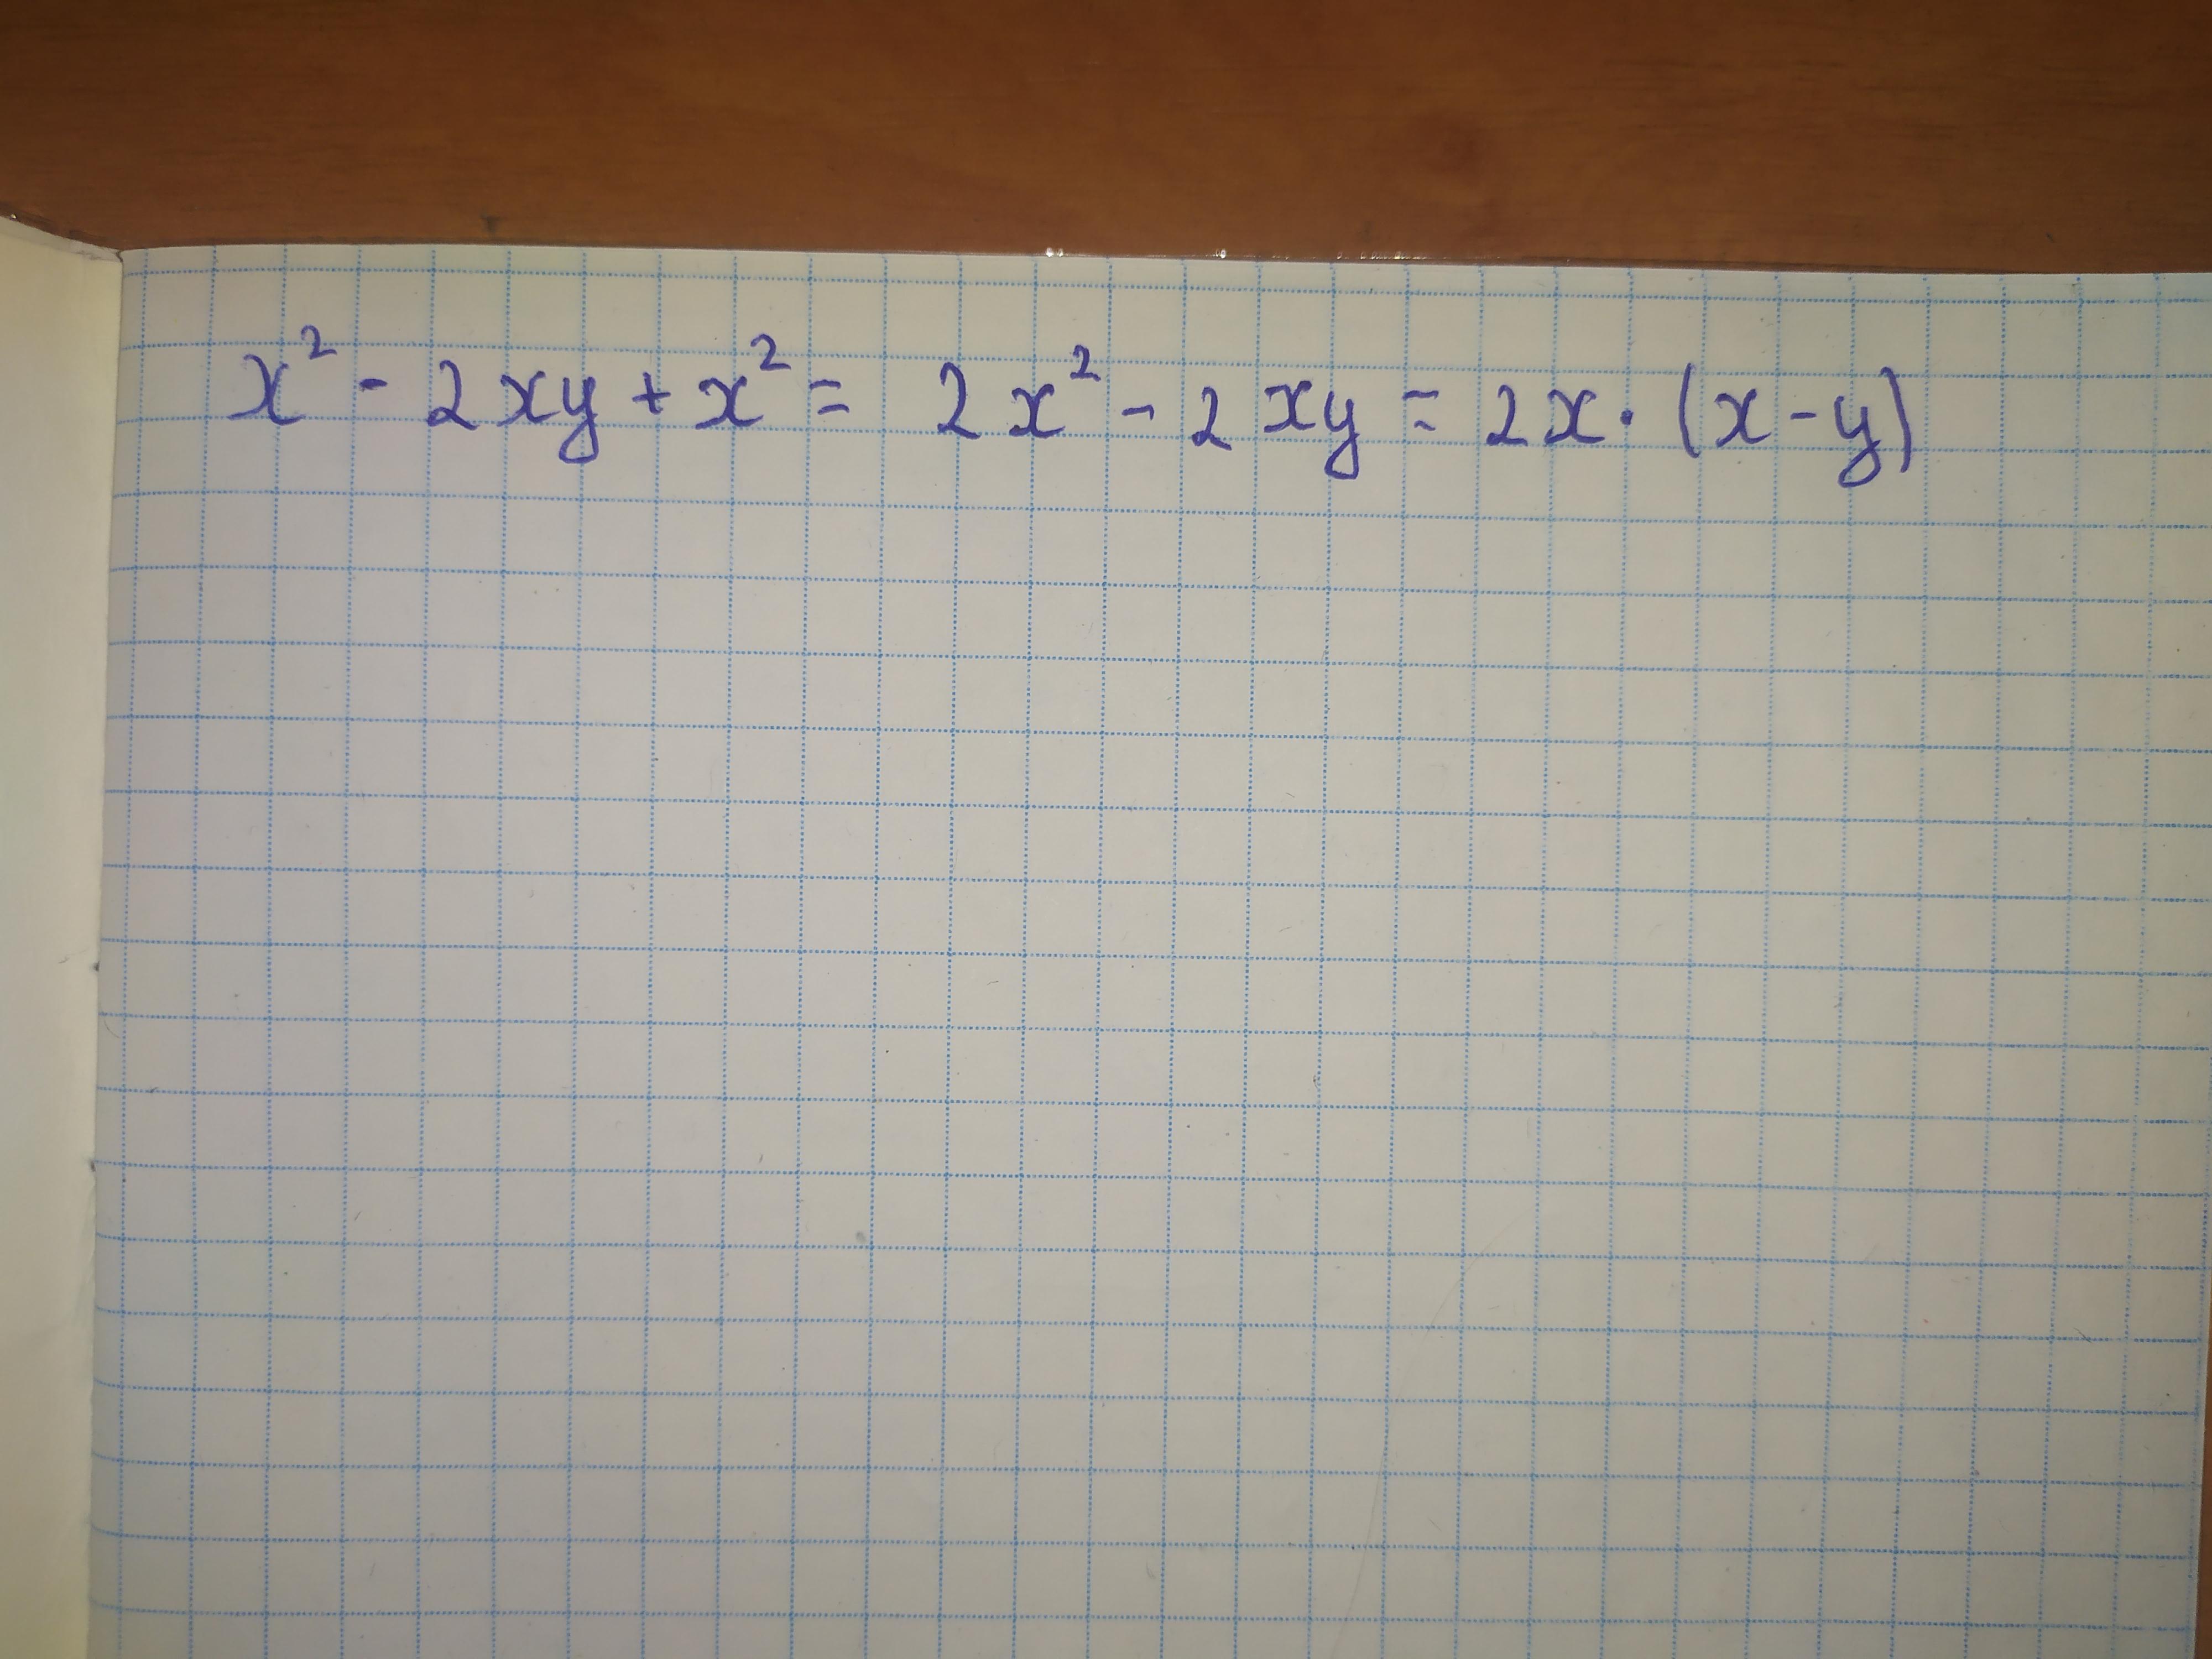 x² - 2xy + x² = 2x² - 2xy = 2x · (x - y)